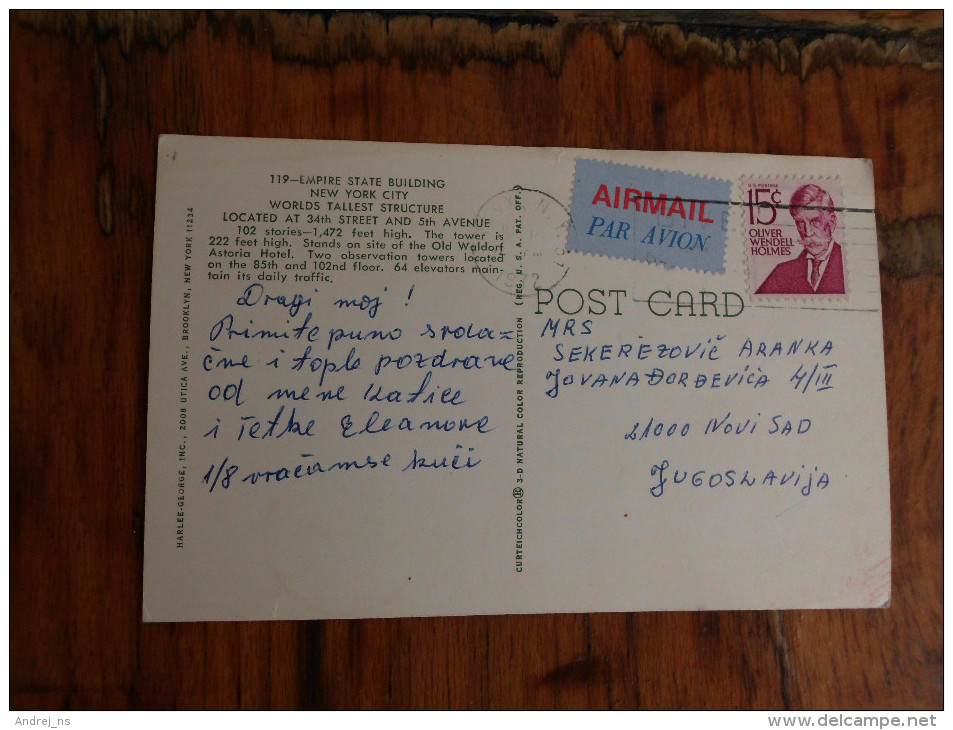 119—EMPIRE STATE BUILDING
NEW YORK CITY
WORLDS TALLEST STRUCTURE
LOCATED AT 34th STREET AND 5th AVENUE
102 stories—1,472 feet high. The tower is
222 feet high. Stands on site of the Old Waldorf
Astoria Hotel. Two observation towers located
on the 85th and 102nd floor. 64 elevators main-
tain its daily traffic.
Dragi moj!
Primite puno srda=
čne i tople pozdrave
od mene Katice
i Tetke Eleanore
1/8 vraćamse kući
HARLEE-GEORGE, INC., 2008 UTICA AVE., BROOKLYN, NEW YORK 11234
CURTEICHCOLOR® 3-D NATURAL COLOR REPRODUCTION (REG. U. S. A. PAT. OFF.)
AIRMAIL
PAR AVION
U.S. POSTAGE
15¢
OLIVER
WENDELL
HOLMES
POST CARD
MRS
SEKEREZOVIČ ARANKA
JOVANA ĐORĐEVIĆA 4/III
21000 NOVI SAD
JUGOSLAVIJA
Andrej_ns
delcampe.net